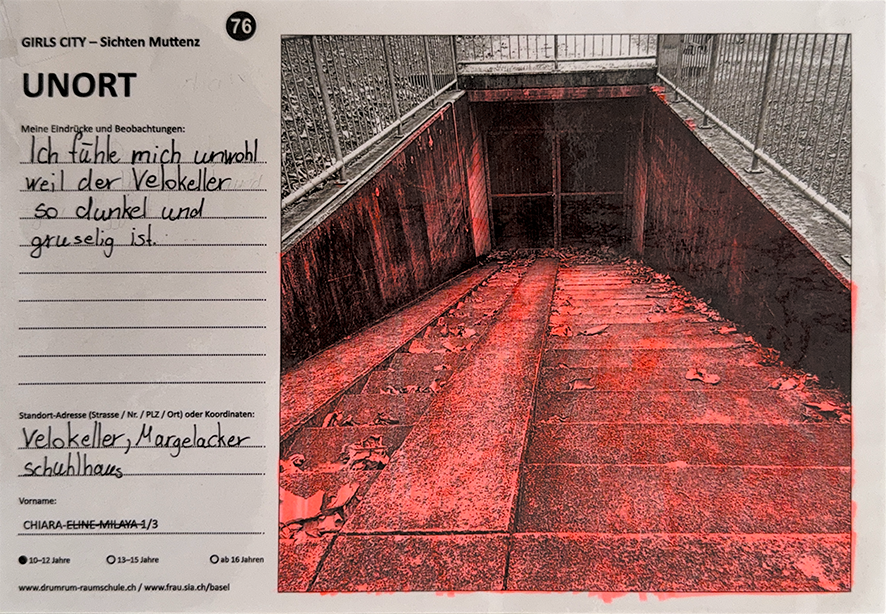 76
GIRLS CITY – Sichten Muttenz
UNORT
Meine Eindrücke und Beobachtungen:
Ich fühle mich unwohl
weil der Velokeller
so dunkel und
gruselig ist.
Standort-Adresse (Strasse / Nr. / PLZ / Ort) oder Koordinaten:
Velokeller, Margelacker
schuhlhaus
Vorname:
CHIARA-ELINE-MILAYA 1/3
10–12 Jahre 13–15 Jahre ab 16 Jahren
www.drumrum-raumschule.ch / www.frau.sia.ch/basel